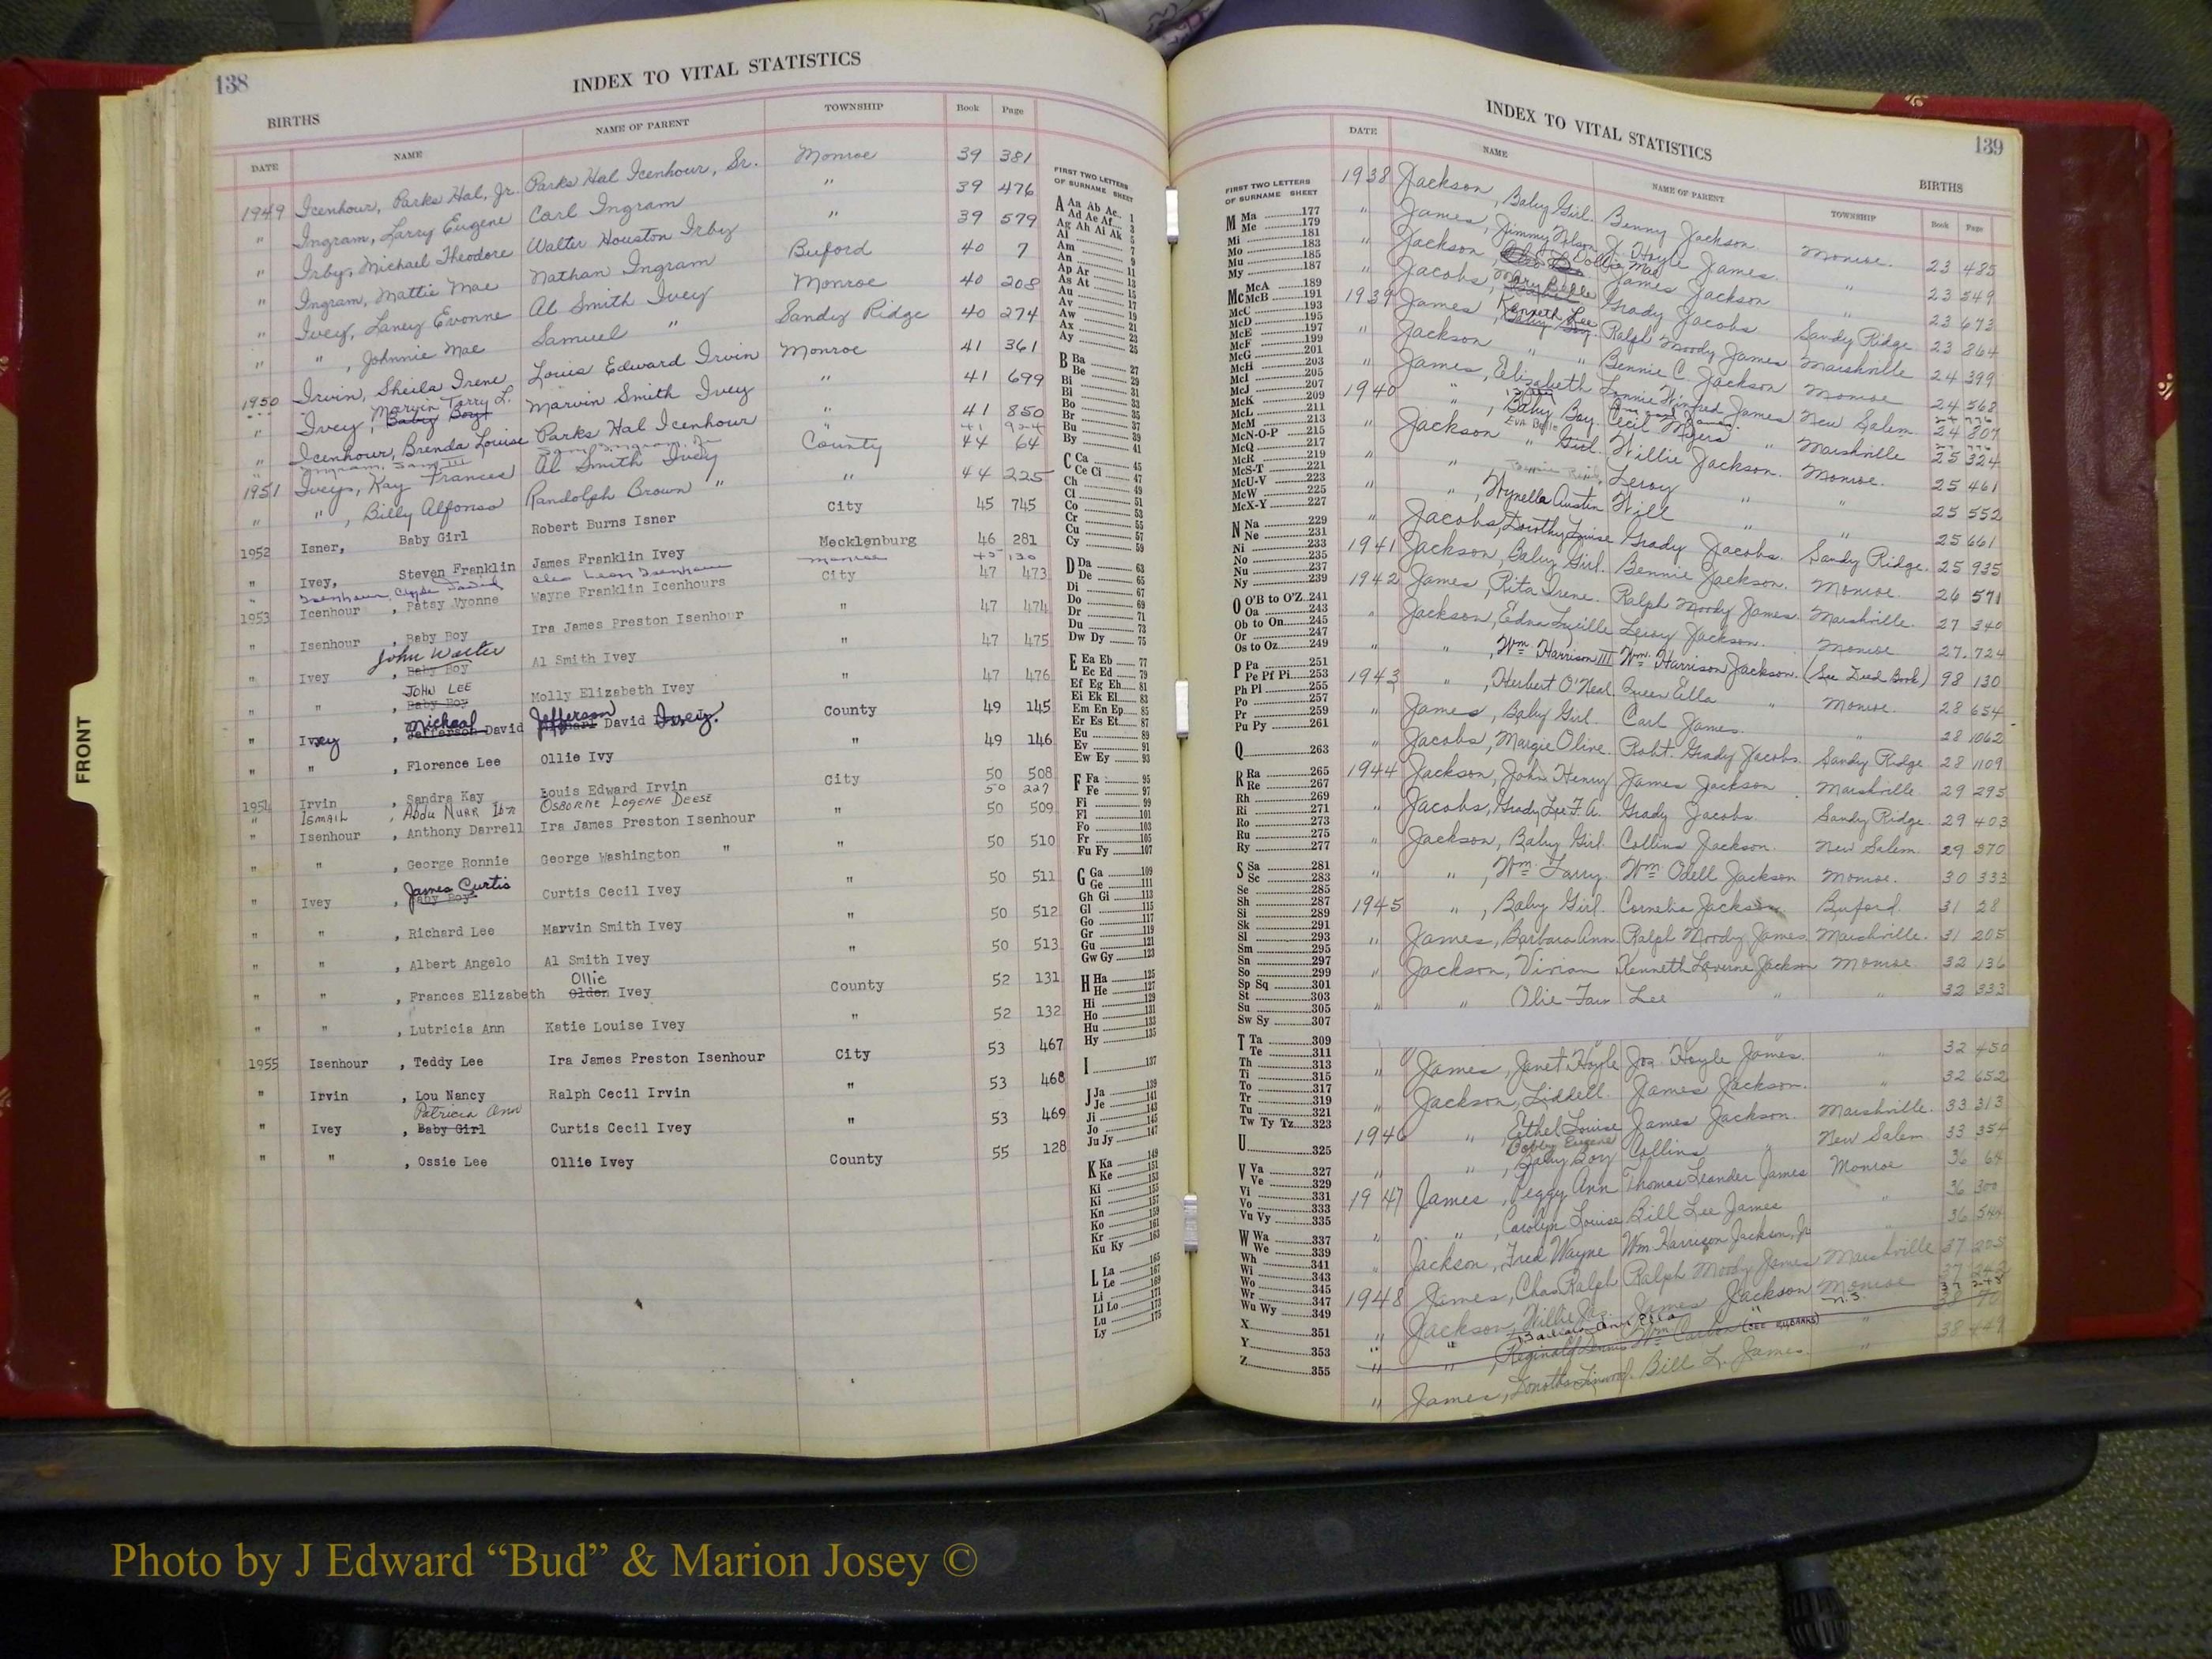 138
INDEX TO VITAL STATISTICS
BIRTHS
DATE NAME NAME OF PARENT TOWNSHIP Book Page
1949 Icenhour, Parks Hal, Jr. Parks Hal Icenhour, Sr. Monroe 39 381
" Ingram, Larry Eugene Carl Ingram " 39 476
" Irby, Michael Theodore Walter Houston Irby " 39 579
" Ingram, Mattie Mae Nathan Ingram Buford 40 7
" Ivey, Laney Evonne Al Smith Ivey Monroe 40 208
" ", Johnnie Mae Samuel " Sandy Ridge 40 274
1950 Irvin, Sheila Irene Louis Edward Irvin Monroe 41 361
" Ivey, Baby Boy Marvin Terry L. Marvin Smith Ivey " 41 699
" Icenhour, Brenda Louise Parks Hal Icenhour " 41 850
Ingram, Sam III Sam Ingram, Jr. " 41 924
1951 Ivey, Kay Frances Al Smith Ivey County 44 64
" ", Billy Alfonso Randolph Brown " " 44 225
1952 Isner, Baby Girl Robert Burns Isner City 45 745
" Ivey, Steven Franklin James Franklin Ivey Mecklenburg 46 281
" Isenhour, Clyde David Cleo Leon Isenhour Monroe 45 130
1953 Icenhour, Patsy Vyonne Wayne Franklin Icenhours City 47 473
" Isenhour, Baby Boy Ira James Preston Isenhour " 47 474
" Ivey, Baby Boy John Walter Al Smith Ivey " 47 475
" ", Baby Boy JOHN LEE Molly Elizabeth Ivey " 47 476
" Ivey, Jefferson Micheal David Jefferson David Ivey. County 49 145
" ", Florence Lee Ollie Ivy " 49 146
1954 Irvin, Sandra Kay Louis Edward Irvin City 50 508
" ISMAIL, ABDU NURR IBN OSBORNE LOGENE DEESE 50 227
" Isenhour, Anthony Darrell Ira James Preston Isenhour " 50 509
" ", George Ronnie George Washington " " 50 510
" Ivey, Baby Boy James Curtis Curtis Cecil Ivey " 50 511
" ", Richard Lee Marvin Smith Ivey " 50 512
" ", Albert Angelo Al Smith Ivey " 50 513
" ", Frances Elizabeth Olden Ollie Ivey County 52 131
" ", Lutricia Ann Katie Louise Ivey " 52 132
1955 Isenhour, Teddy Lee Ira James Preston Isenhour City 53 467
" Irvin, Lou Nancy Ralph Cecil Irvin " 53 468
" Ivey, Baby Girl Patricia Ann Curtis Cecil Ivey " 53 469
" ", Ossie Lee Ollie Ivey County 55 128
FRONT
FIRST TWO LETTERS
OF SURNAME SHEET
A Aa Ab Ac 1
Ad Ae Af 3
Ag Ah Ai Ak 5
Al 7
Am 9
An 11
Ap Ar 13
As At 15
Au 17
Av 19
Aw 21
Ax 23
Ay 25
B Ba 27
Be 29
Bi 31
Bl 33
Bo 35
Br 37
Bu 39
By 41
C Ca 45
Ce Ci 47
Ch 49
Cl 51
Co 53
Cr 55
Cu 57
Cy 59
D Da 63
De 65
Di 67
Do 69
Dr 71
Du 73
Dw Dy 75
E Ea Eb 77
Ec Ed 79
Ef Eg Eh 81
Ei Ek El 83
Em En Ep 85
Er Es Et 87
Eu 89
Ev 91
Ew Ey 93
F Fa 95
Fe 97
Fi 99
Fl 101
Fo 103
Fr 105
Fu Fy 107
G Ga 109
Ge 111
Gh Gi 113
Gl 115
Go 117
Gr 119
Gu 121
Gw Gy 123
H Ha 125
He 127
Hi 129
Ho 131
Hu 133
Hy 135
I 137
J Ja 139
Je 141
Ji 143
Jo 145
Ju Jy 147
K Ka 149
Ke 151
Ki 153
Kl 155
Kn 157
Ko 159
Kr 161
Ku Ky 163
L La 165
Le 167
Li 169
Ll Lo 171
Lu 173
Ly 175
INDEX TO VITAL STATISTICS
139
BIRTHS
FIRST TWO LETTERS
OF SURNAME SHEET
M Ma 177
Me 179
Mi 181
Mo 183
Mu 185
My 187
Mc McA 189
McB 191
McC 193
McD 195
McE 197
McF 199
McG 201
McH 203
McI 205
McJ 207
McK 209
McL 211
McM 213
McN-O-P 215
McQ 217
McR 219
McS-T 221
McU-V 223
McW 225
McX-Y 227
N Na 229
Ne 231
Ni 233
No 235
Nu 237
Ny 239
O O'B to O'Z 241
Oa 243
Ob to On 245
Or 247
Os to Oz 249
P Pa 251
Pe Pf Pi 253
Ph Pl 255
Po 257
Pr 259
Pu Py 261
Q 263
R Ra 265
Re 267
Rh 269
Ri 271
Ro 273
Ru 275
Ry 277
S Sa 281
Sc 283
Se 285
Sh 287
Si 289
Sk 291
Sl 293
Sm 295
Sn 297
So 299
Sp Sq 301
St 303
Su 305
Sw Sy 307
T Ta 309
Te 311
Th 313
Ti 315
To 317
Tr 319
Tu 321
Tw Ty Tz 323
U 325
V Va 327
Ve 329
Vi 331
Vo 333
Vu Vy 335
W Wa 337
We 339
Wh 341
Wi 343
Wo 345
Wr 347
Wu Wy 349
X 351
Y 353
Z 355
DATE NAME NAME OF PARENT TOWNSHIP Book Page
1938 Jackson, Baby Girl. Benny Jackson. Monroe. 23 485
" James, Jimmy Nelson J. Hoyle James. " 23 549
" Jackson, Dollie Mae James Jackson " 23 673
" Jacobs, Mary Belle Grady Jacobs Sandy Ridge 23 864
1939 James, Baby Boy Kenneth Lee Ralph Moody James Marshville 24 399
" Jackson " " Bennie C. Jackson Monroe 24 568
" James, Elizabeth Lonnie Winfred James New Salem 24 807
1940 ", Baby Boy. Cecil Myers " Marshville 25 324
" Jackson " Girl. Eva Belle Willie Jackson. Monroe. 25 461
" " Leroy " " 25 552
" ", Wynella Austin Will " " 25 661
" Jacobs, Dorothy Louise Grady Jacobs. Sandy Ridge. 25 935
1941 Jackson, Baby Girl. Bennie Jackson. Monroe. 26 571
1942 James, Rita Irene. Ralph Moody James. Marshville. 27 340
" Jackson, Edna Lucille Leroy Jackson. Monroe 27 724
" ", Wm. Harrison III Wm. Harrison Jackson. (See Deed Book) 98 130
1943 ", Herbert O'Neal Queen Ella " Monroe. 28 654
" James, Baby Girl. Carl James. " 28 1062
" Jacobs, Margie Oline. Robt. Grady Jacobs. Sandy Ridge 28 1109
1944 Jackson, John Henry James Jackson. Marshville. 29 295
" Jacobs, Grady Lee F.A. Grady Jacobs. Sandy Ridge. 29 403
" Jackson, Baby Girl. Collins Jackson. New Salem. 29 370
" ", Wm. Larry. Wm. Odell Jackson Monroe. 30 333
1945 ", Baby Girl. Cornelia Jackson. Buford. 31 28
" James, Barbara Ann. Ralph Moody James. Marshville. 31 205
" Jackson, Vivian Kenneth Laverne Jackson Monroe. 32 136
" " Olie Faw Lee " " 32 333
" James, Janet Hoyle Jos. Hoyle James. " 32 450
" Jackson, Liddell. James Jackson. " 32 652
1946 ", Ethel Louise James Jackson. Marshville. 33 313
" ", Baby Boy Bobby Eugene Collins " New Salem 33 354
1947 James, Peggy Ann Thomas Leander James Monroe 36 64
" ", Carolyn Louise Bill Lee James " 36 300
" Jackson, Fred Wayne Wm. Harrison Jackson, Jr. " 36 544
1948 James, Chas Ralph Ralph Moody James Marshville 37 205
" Jackson, Willie Jas. James Jackson Monroe 37 242
" " Barbara Ann Ella " N.S. 37 248
" ", Reginald Dennis Wm. Carter (SEE EUBANKS) " 38 70
" James, Linwood. Bill L. James. " 38 449
Photo by J Edward “Bud” & Marion Josey ©